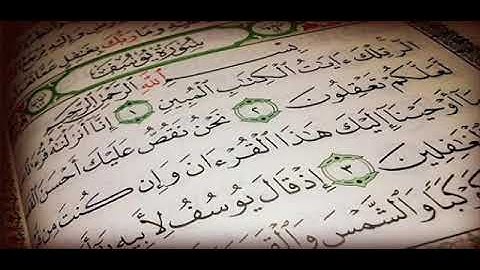 وَمَا رَبُّكَ بِغَٰفِلٍ عَمَّا
سُورَةُ يُوسُفَ
بِسْمِ ٱللَّهِ ٱلرَّحْمَٰنِ ٱلرَّحِيمِ
الٓر تِلْكَ ءَايَٰتُ ٱلْكِتَٰبِ ٱلْمُبِينِ ١ إِنَّآ أَنزَلْنَٰهُ
لَّعَلَّكُمْ تَعْقِلُونَ ٢ نَحْنُ نَقُصُّ عَلَيْكَ أَحْسَنَ
أَوْحَيْنَآ إِلَيْكَ هَٰذَا ٱلْقُرْءَانَ وَإِن كُنتَ مِن
ٱلْغَٰفِلِينَ ٣ إِذْ قَالَ يُوسُفُ لِأَبِيهِ
كَوْكَبًا وَٱلشَّمْسَ وَٱلْقَمَرَ